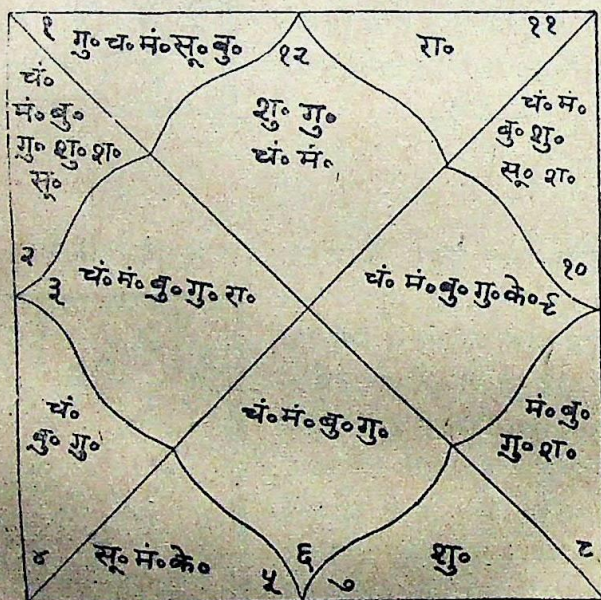 १ गु॰ च॰ मं॰ सू॰ बु॰ १२ रा॰ ११
चं॰
मं॰ बु॰
गु॰ शु॰ श॰
सू॰
शु॰ गु॰
चं॰ मं॰
चं॰ मं॰
बु॰ शु॰
सू॰ श॰
२
३ चं॰ मं॰ बु॰ गु॰ रा॰
चं॰ मं॰ बु॰ गु॰ के॰ ९
१०
चं॰
बु॰ गु॰
चं॰ मं॰ बु॰ गु॰
मं॰ बु॰
गु॰ श॰
४ सू॰ मं॰ के॰ ५
६
७ शु॰ ८